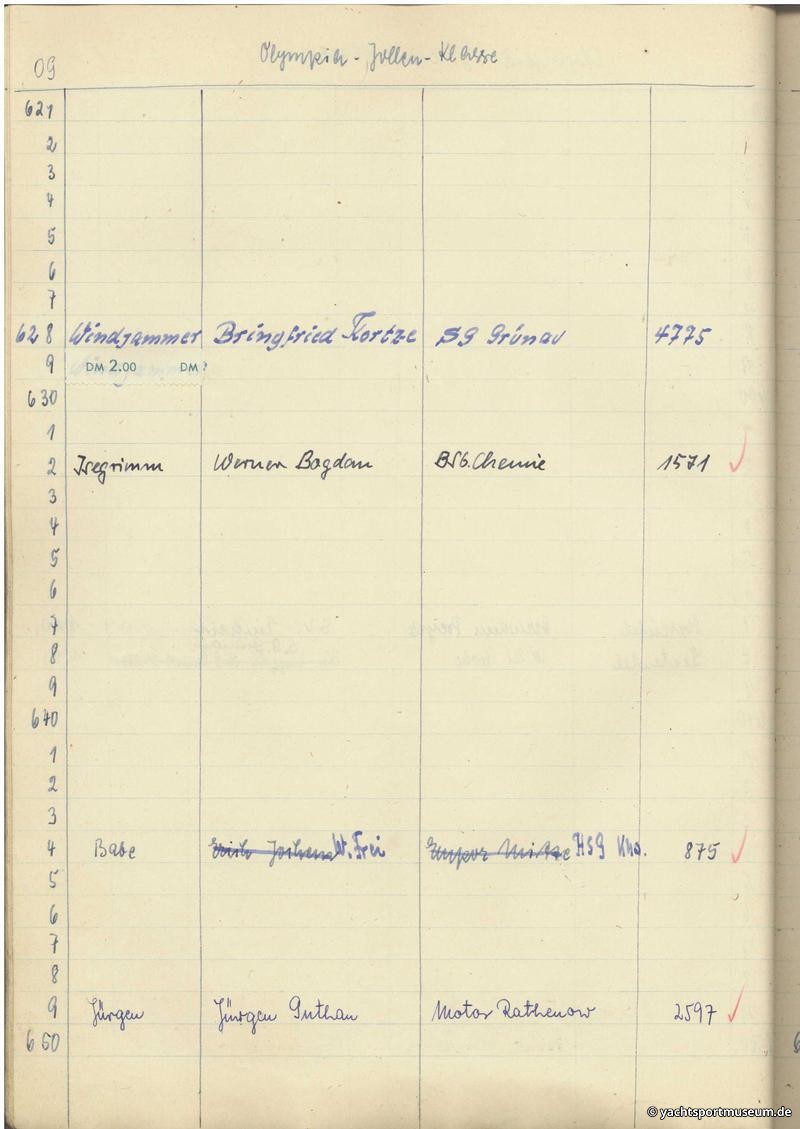 09 Olympia-Jollen-Klasse
621
2
3
4
5
6
7
628 Windjammer Bringfried Kortze SG Grünau 4775
9 DM 2.00 DM
630
1
2 Isegrimm Werner Bogdan BSG. Chemie 1571
3
4
5
6
7
8
9
640
1
2
3
4 Babe Erich Jochens W. Frei Empor Mitte HSG 875
5
6
7
8
9 Jürgen Jürgen Guthan Motor Rathenow 2597
650
© yachtsportmuseum.de